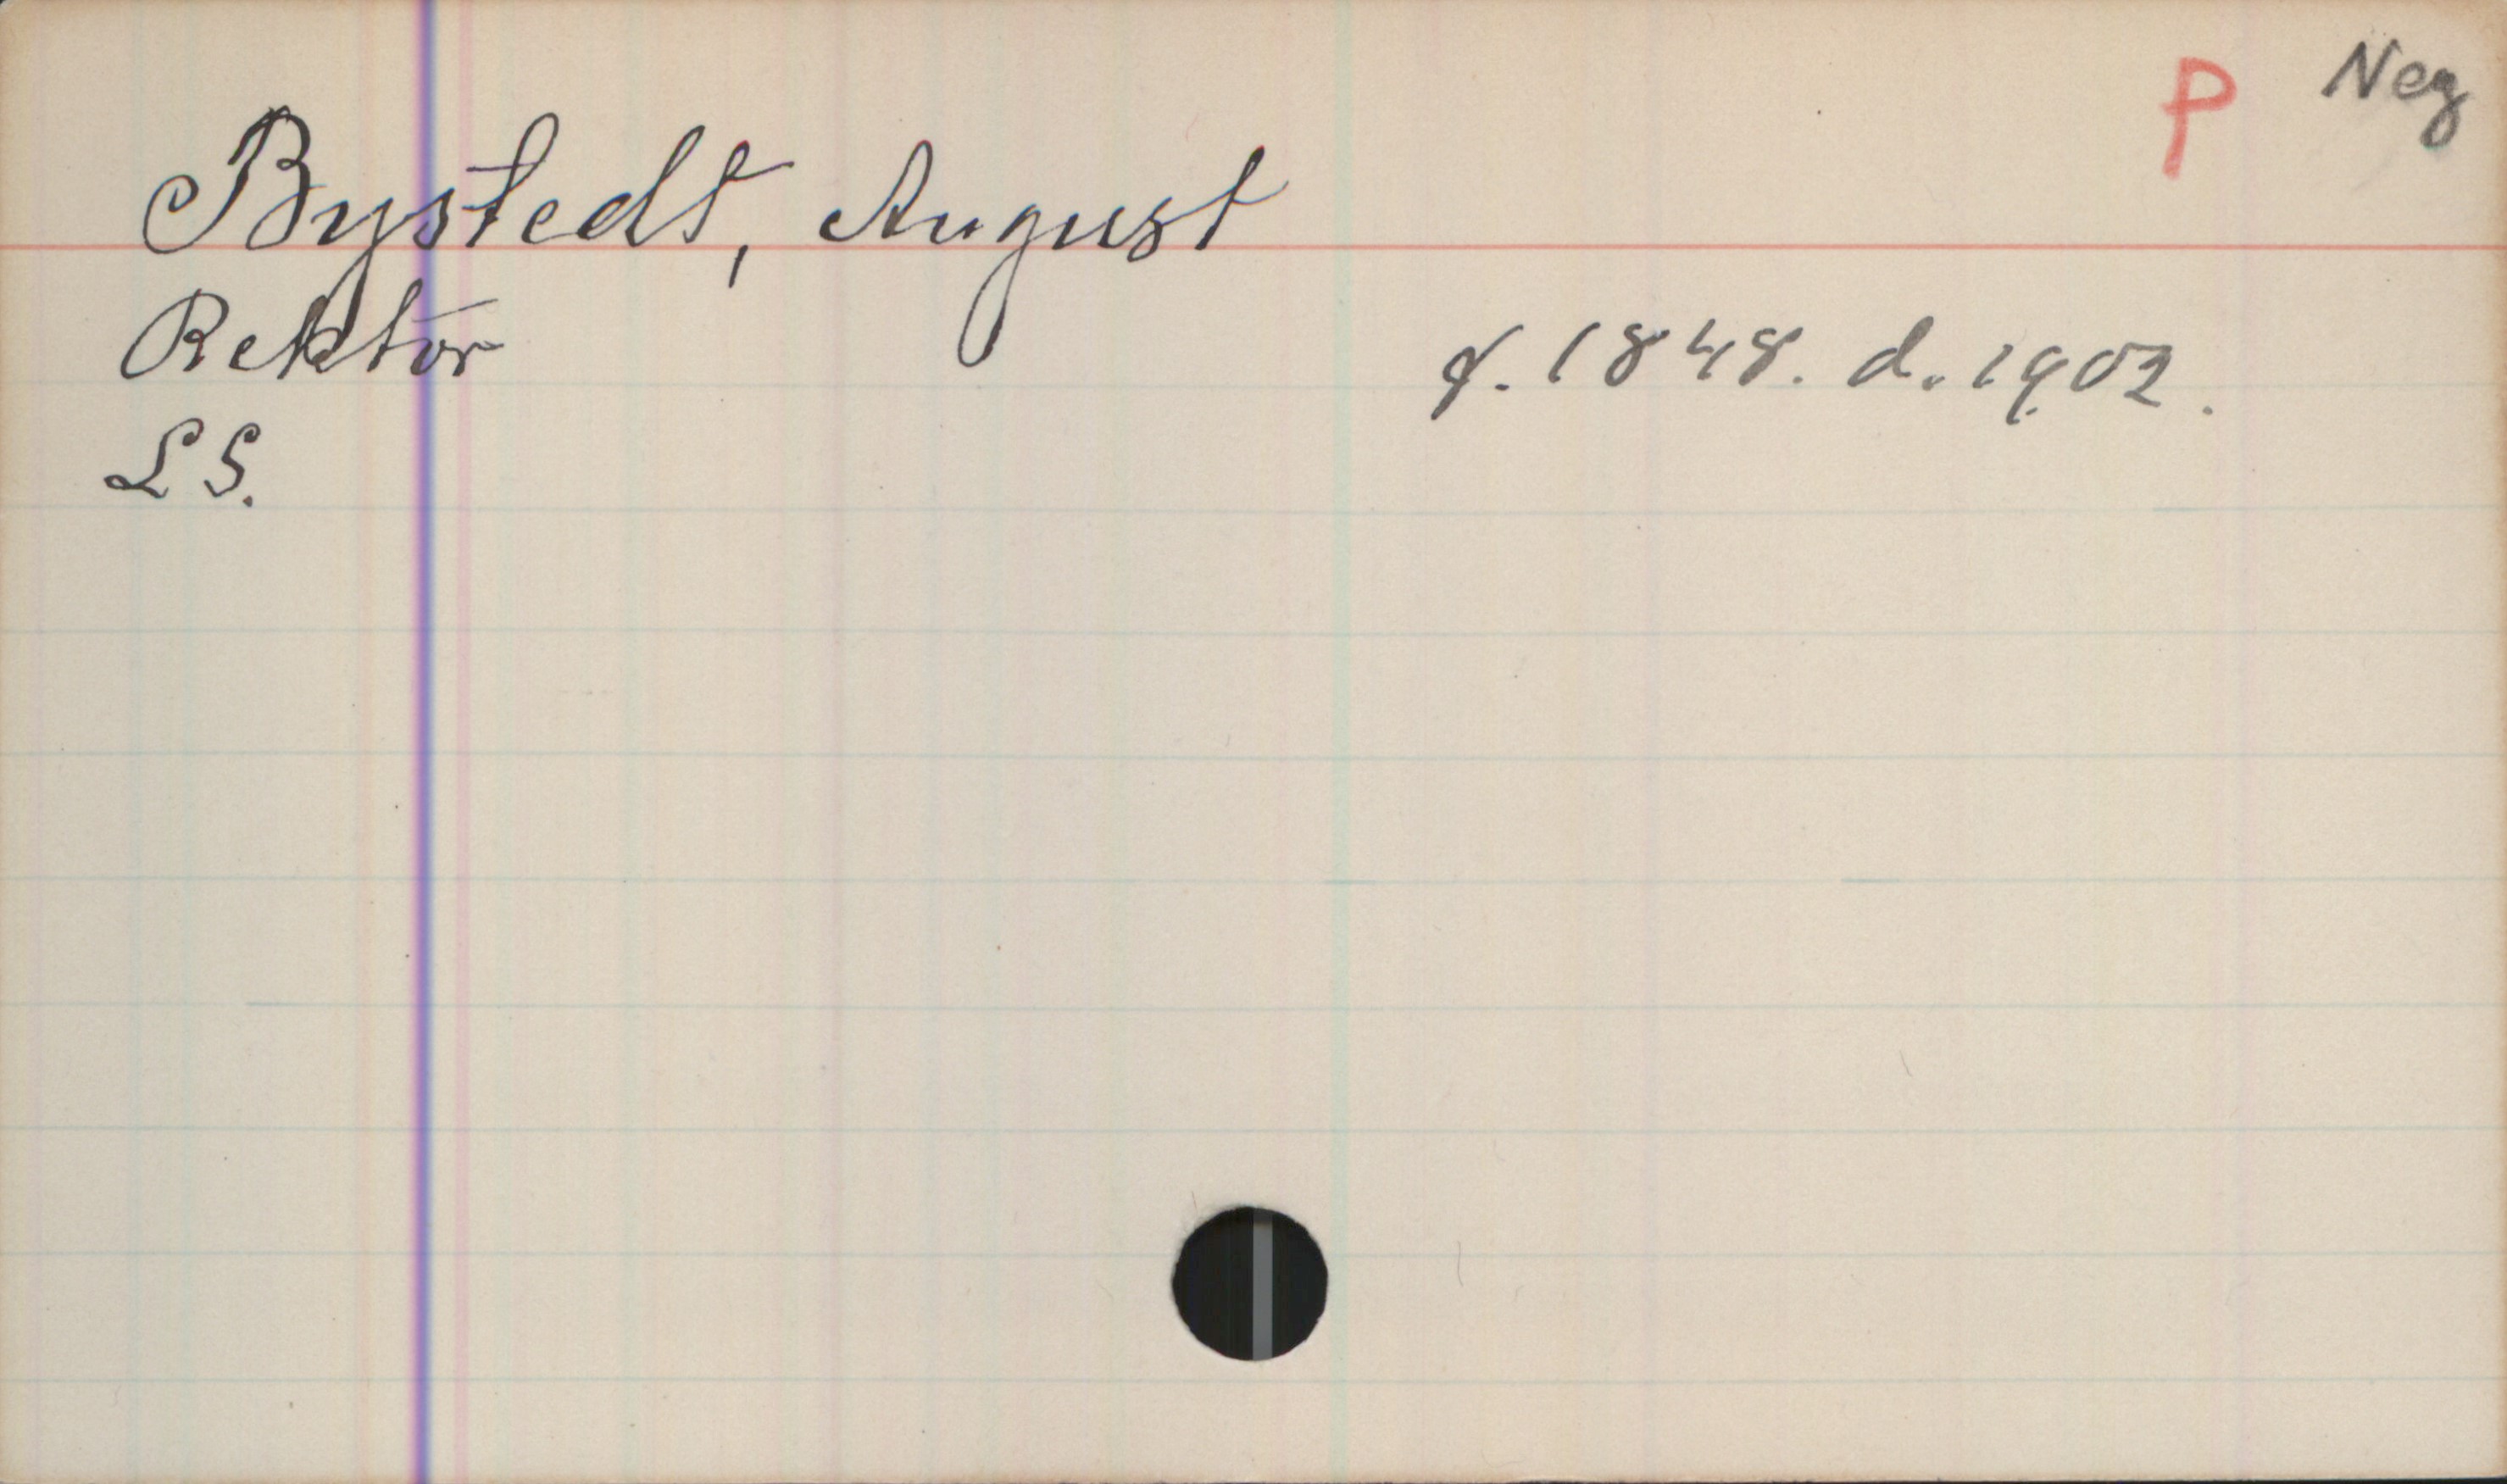 P Neg
Bystedt, August
Rektor
f. 1848. d. 1902.
L S.